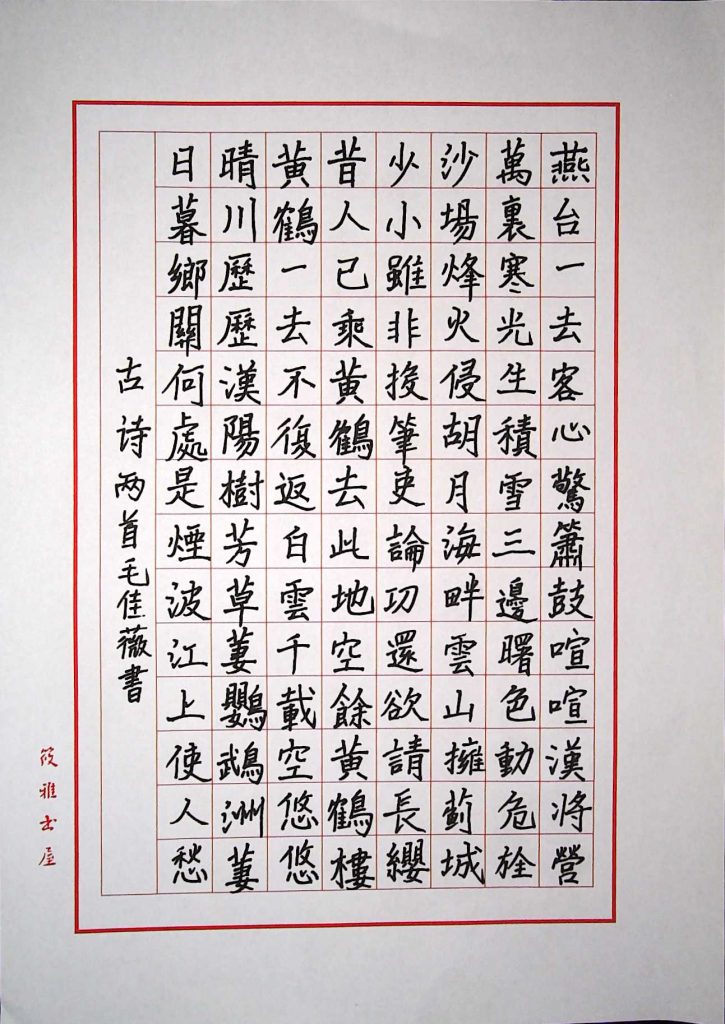 燕台一去客心驚簫鼓喧喧漢將營
萬裏寒光生積雪三邊曙色動危旌
沙場烽火侵胡月海畔雲山擁薊城
少小雖非投筆吏論功還欲請長纓
昔人已乘黄鶴去此地空餘黄鶴樓
黄鶴一去不復返白雲千載空悠悠
晴川歷歷漢陽樹芳草萋鸚鵡洲萋
日暮鄉關何處是煙波江上使人愁
古诗两首毛佳薇書
筱雅书屋